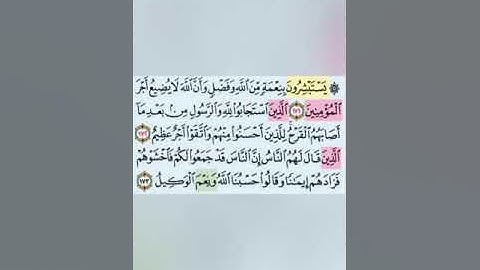 ۞ يَسْتَبْشِرُونَ بِنِعْمَةٍ مِّنَ ٱللَّهِ وَفَضْلٍ وَأَنَّ ٱللَّهَ لَا يُضِيعُ أَجْرَ
ٱلْمُؤْمِنِينَ ١٧١ ٱلَّذِينَ ٱسْتَجَابُوا۟ لِلَّهِ وَٱلرَّسُولِ مِنۢ بَعْدِ مَآ
أَصَابَهُمُ ٱلْقَرْحُ لِلَّذِينَ أَحْسَنُوا۟ مِنْهُمْ وَٱتَّقَوْا۟ أَجْرٌ عَظِيمٌ ١٧٢
ٱلَّذِينَ قَالَ لَهُمُ ٱلنَّاسُ إِنَّ ٱلنَّاسَ قَدْ جَمَعُوا۟ لَكُمْ فَٱخْشَوْهُمْ
فَزَادَهُمْ إِيمَٰنًا وَقَالُوا۟ حَسْبُنَا ٱللَّهُ وَنِعْمَ ٱلْوَكِيلُ ١٧٣